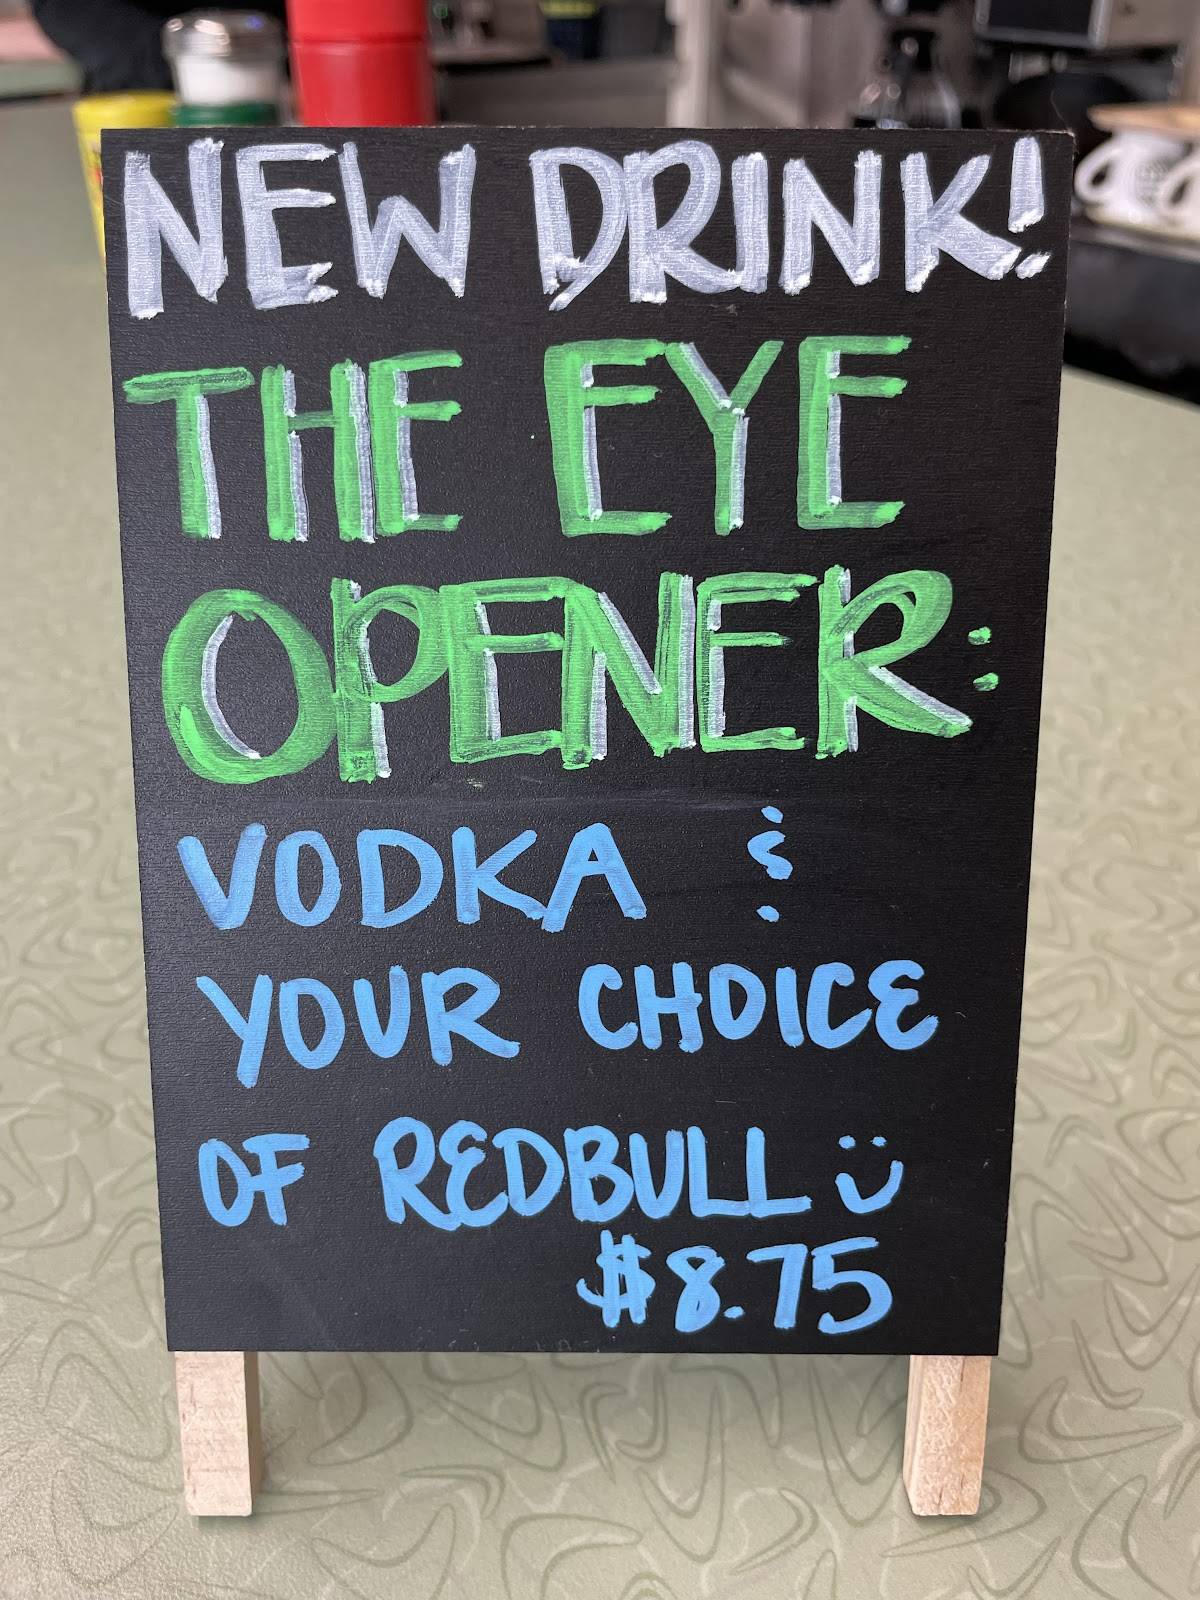 NEW DRINK!
THE EYE
OPENER:
VODKA &
YOUR CHOICE
OF REDBULL Ü
$8.75